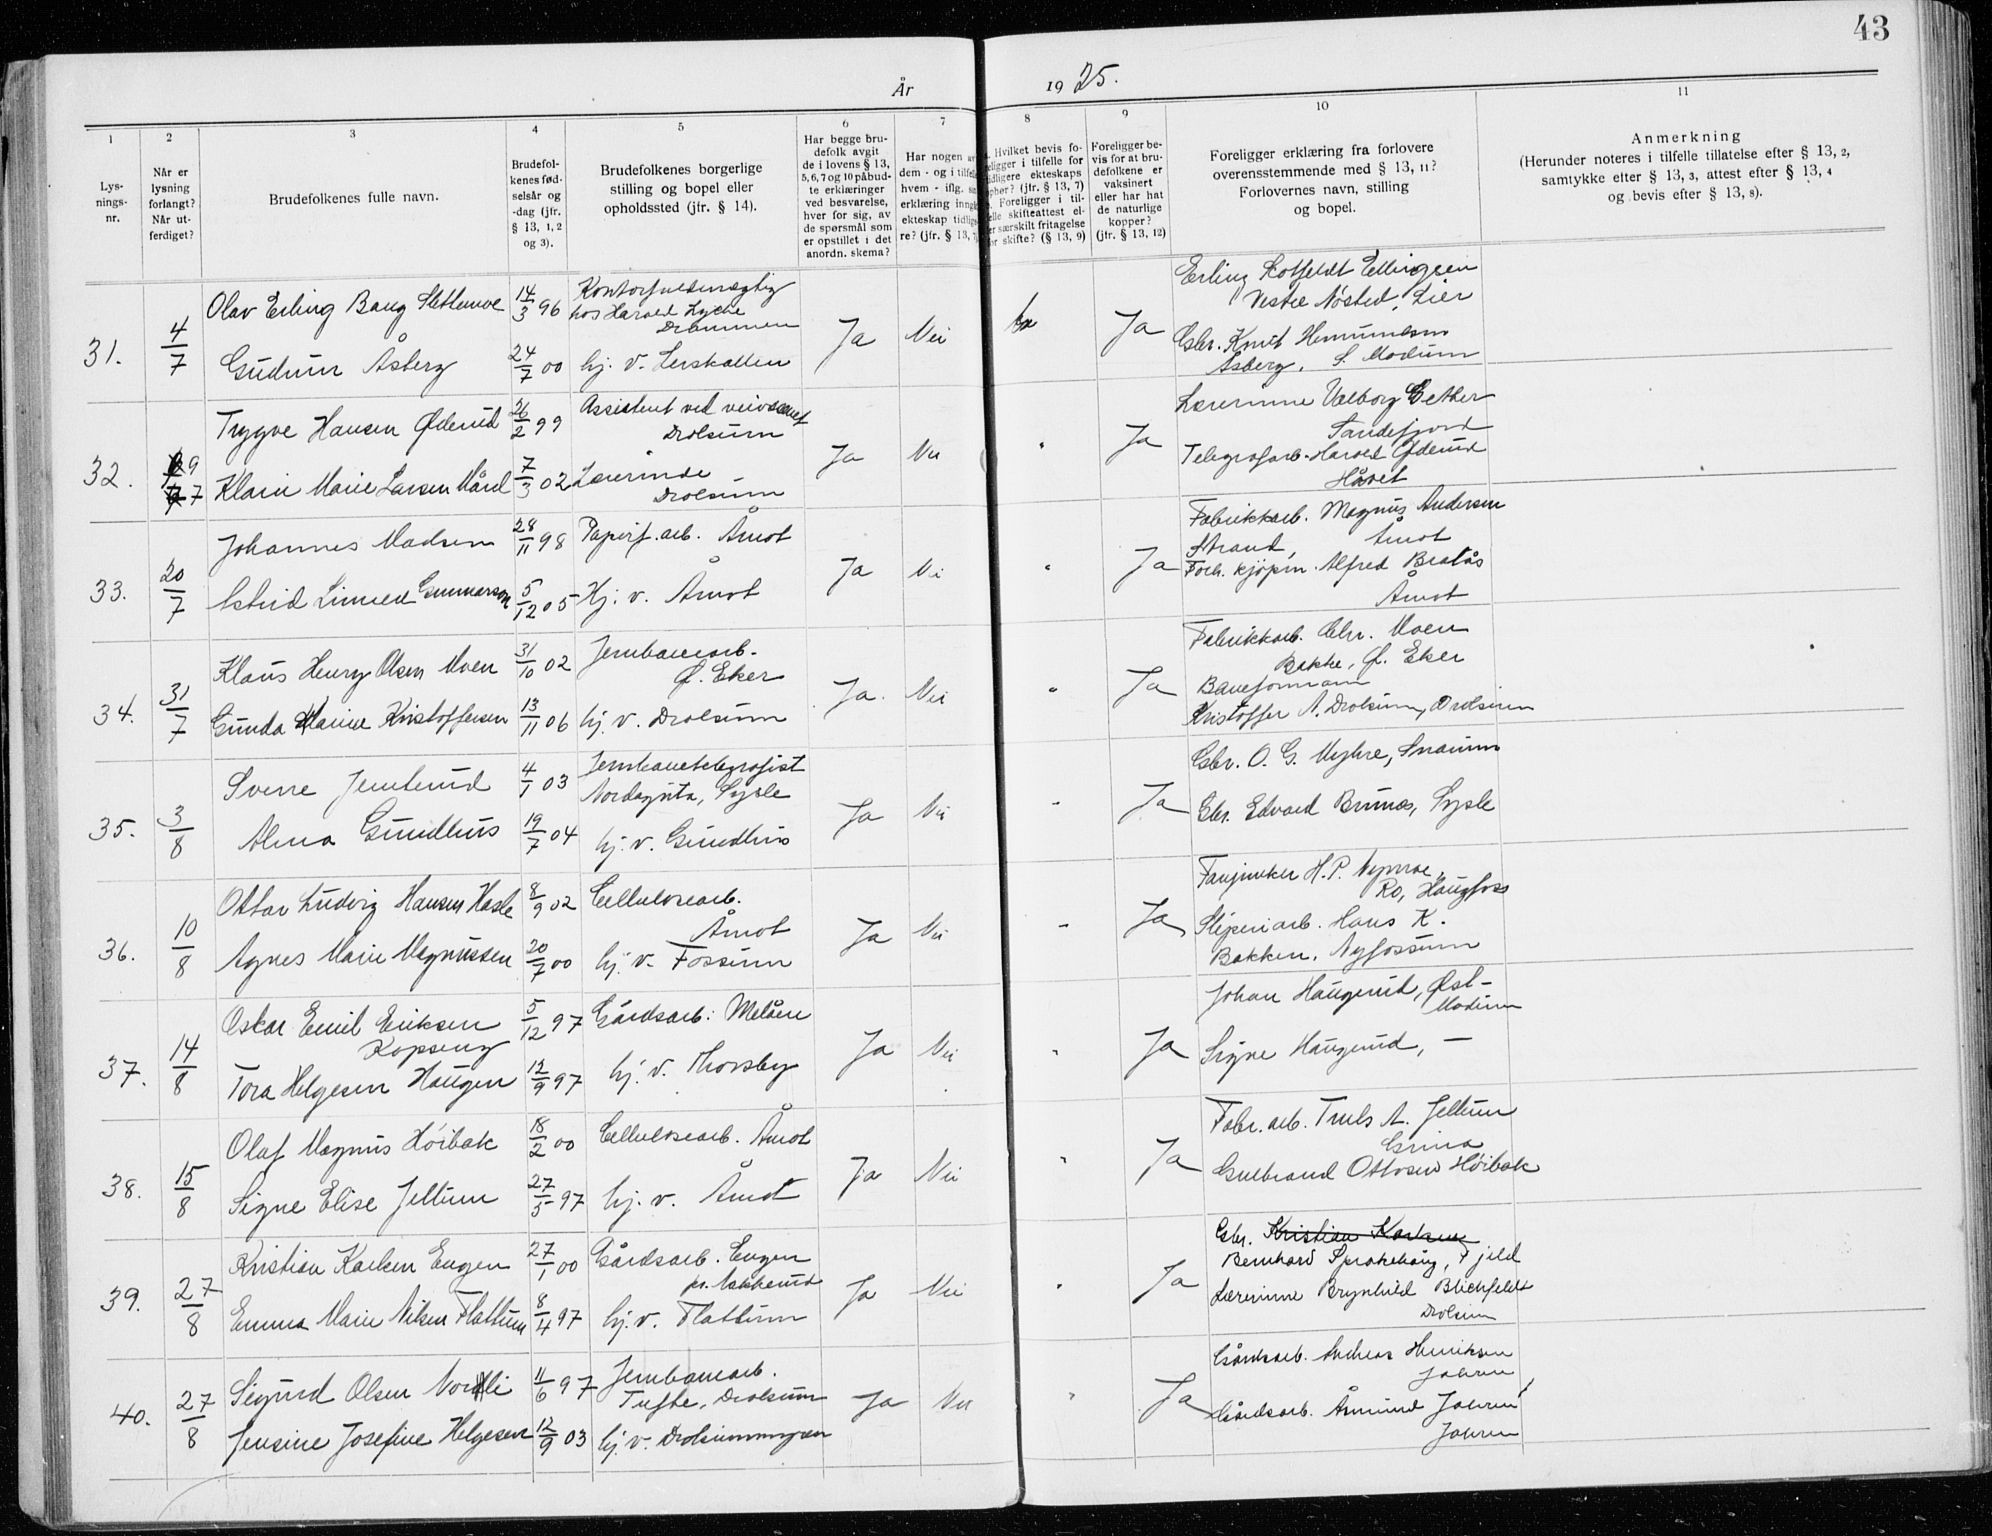 43
År 1925.
1
2
3
4
5
6
7
8
9
10
11
Lys-
nings-
nr.
Når er
lysning
forlangt?
Når ut-
ferdiget?
Brudefolkenes fulle navn.
Brudefol-
kenes fød-
selsår og
-dag (jfr.
§ 13, 1, 2
og 3).
Brudefolkenes borgerlige
stilling og bopel eller
opholdssted (jfr. § 14).
Har begge bru-
defolk avgit
de i lovens § 13,
5, 6, 7 og 10 påbud-
te erklæringer
ved besvarelse,
hver for sig, av
de spørsmål som
er opstillet i det
anordn. skema?
Har nogen av
dem - og i tilfelle
hvem - iflg.
erklæring inngå
ekteskap tidlige
re? (jfr. § 13,
Hvilket bevis fo-
religger i tilfelle for
tidligere ekteskaps
ophør? (jfr. § 13, 7)
Foreligger i til-
felle skifteattest el-
ler særskilt fritagelse
for skifte? (§ 13, 9)
Foreligger be-
vis for at bru-
defolkene er
vaksinert
eller har hat
de naturlige
kopper?
(jfr. § 13, 12)
Foreligger erklæring fra forlovere
overensstemmende med § 13, 11?
Forlovernes navn, stilling
og bopel.
Anmerkning
(Herunder noteres i tilfelle tillatelse efter § 13, 2,
samtykke efter § 13, 3, attest efter § 13, 4
og bevis efter § 13, 8).
31.
4/7
Olav Erling Bang
14/3 96
Kontorfuldmægtig
hos Harald Lyche
Drammen
Gudrun Åsberg
24/7 00
hj. v. Lerskallen
Ja
Nei
Ja
Erling Rotfeldt Ellingsen
Vestre Nøsted, Lier
Gbr. Knut
Åsberg, S. Modum
32.
Trygve Hansen Øderud
26/2 99
Assistent ved veivesenet
Drolsum
Klara Marie Larsen
7/3 02
Lærerinde
Drolsum
Ja
Nei
"
Ja
Lærerinne Valborg
Sandefjord
Telegrafarb. Harald Øderud
Håvet
33.
20/7
Johannes Madsen
28/11 98
Papirf.arb. Åmot
Astrid Linnea Gunnarson
5/12 05
Hj. v. Åmot
Ja
Nei
"
Ja
Fabrikkarb. Magnus Andersen
Strand, Åmot
Forh. kjøpm. Alfred Bråtås
Åmot
34.
31/7
Klaus Henry Olsen Moen
31/10 02
Jernbanearb.
Ø. Eker
Gunda Marie Kristoffersen
13/11 06
hj. v. Drolsum
Ja.
Nei
"
Ja
Fabrikkarb. Chr. Moen
Bakke, Ø. Eker
Baneformann
Kristoffer A. Drolsum, Drolsum
35.
3/8
Sverre Jemterud
4/1 03
Jernbanetelegrafist
Sysle
Alma Gundhus
19/7 04
hj. v. Gundhus
Ja
Nei
"
Ja
Gbr. O. G. Myhre, Snarum
Gbr. Edvard Brunes, Sysle
36.
10/8
Ottar Ludvig Hansen Hasle
8/9 02
Cellulosearb.
Åmot
Agnes Marie Magnussen
20/7 00
hj. v. Fossum
Ja
Nei
"
Ja
H. P. Nymoe,
Ro, Haugfoss
Sliperiarb. Hans K.
Bakken, Nyfossum
37.
14/8
Oskar Emil Eriksen
Kopseng
5/12 97
Gårdsarb. Melåen
Tora Helgesen Haugen
12/9 97
hj. v. Thorsby
Ja
Nei
"
Ja
Johan Haugerud, Øst-
Modum
Signe Haugerud, —
38.
15/8
Olaf Magnus Høibak
18/2 00
Cellulosearb. Åmot
Signe Elise Jellum
27/5 97
hj. v. Åmot
Ja
Nei
"
Ja
Fabr.arb. Truls A. Jellum
Grina
Gulbrand Ottosen Høibak
39.
27/8
Kristian Karlsen Engen
27/1 00
Gårdsarb. Engen
pr. Nakkerud
Emma Marie Nilsen Flattum
8/4 97
hj. v. Flattum
Ja
Nei
"
Ja
Gbr. Kristian Karlsen
Bernhard Sprakehaug, Fjeld
Lærerinne Brynhild Blichfeldt
Drolsum
40.
27/8
Sigurd Olsen Nordli
11/6 97
Jernbanearb.
Tufte, Drolsum
Jensine Josefine Helgesen
12/9 03
hj. v. Drolsummoen
Ja
Nei
"
Ja
Gårdsarb. Andreas Henriksen
Johren
Gårdsarb. Åsmund Johren
Johren